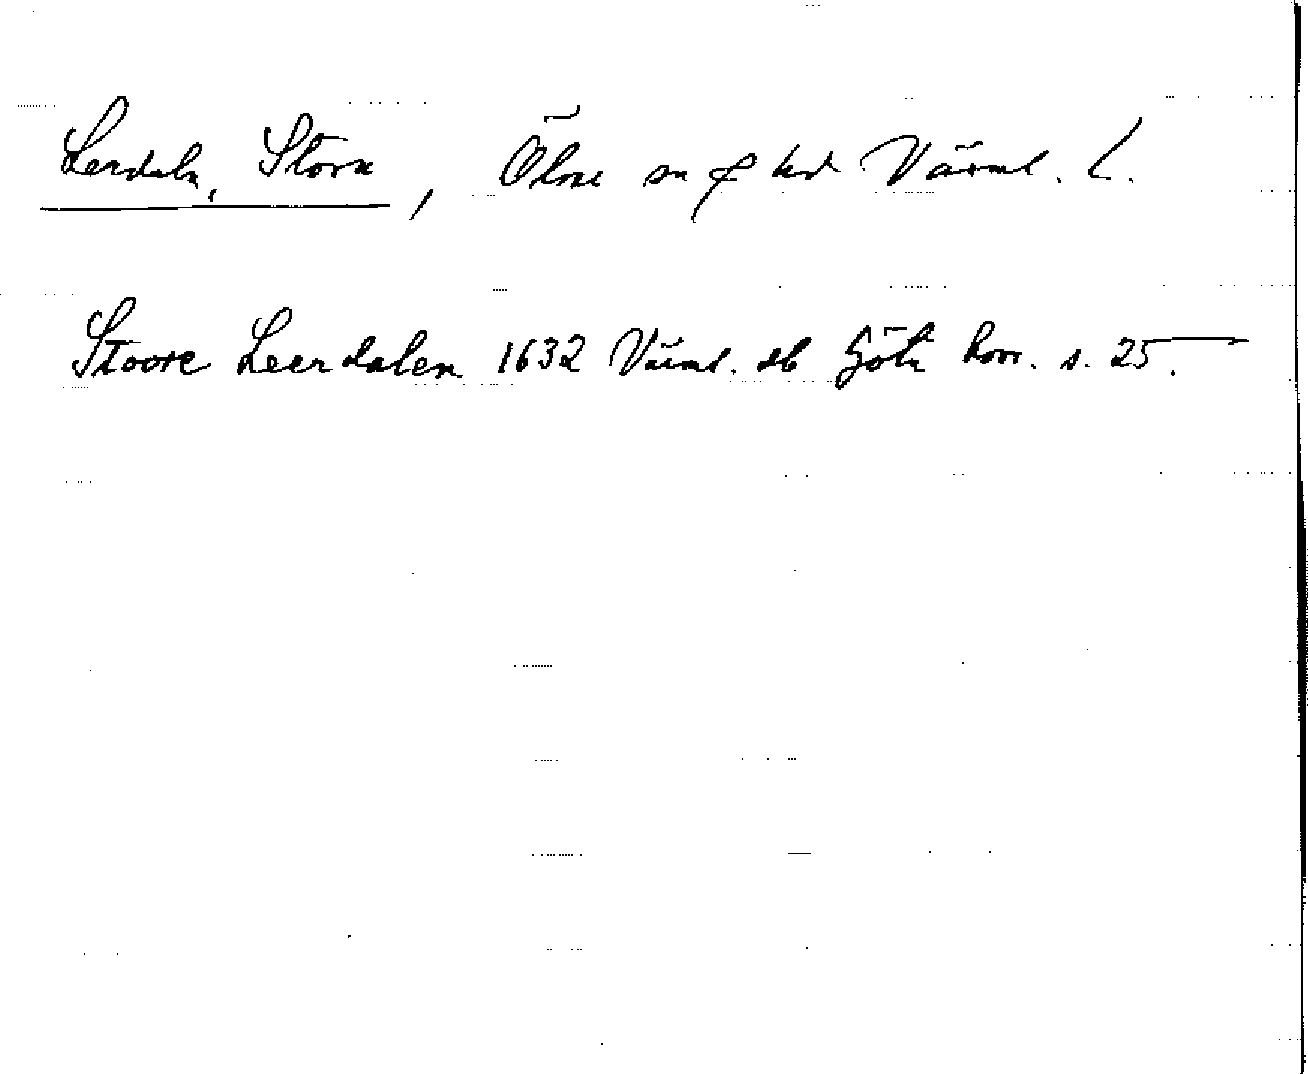 Lerdaln, Stora, Ölme sn f hd Värml. L.
Stoore Leerdalen 1632 Värml. db Göta hovr. s. 25.